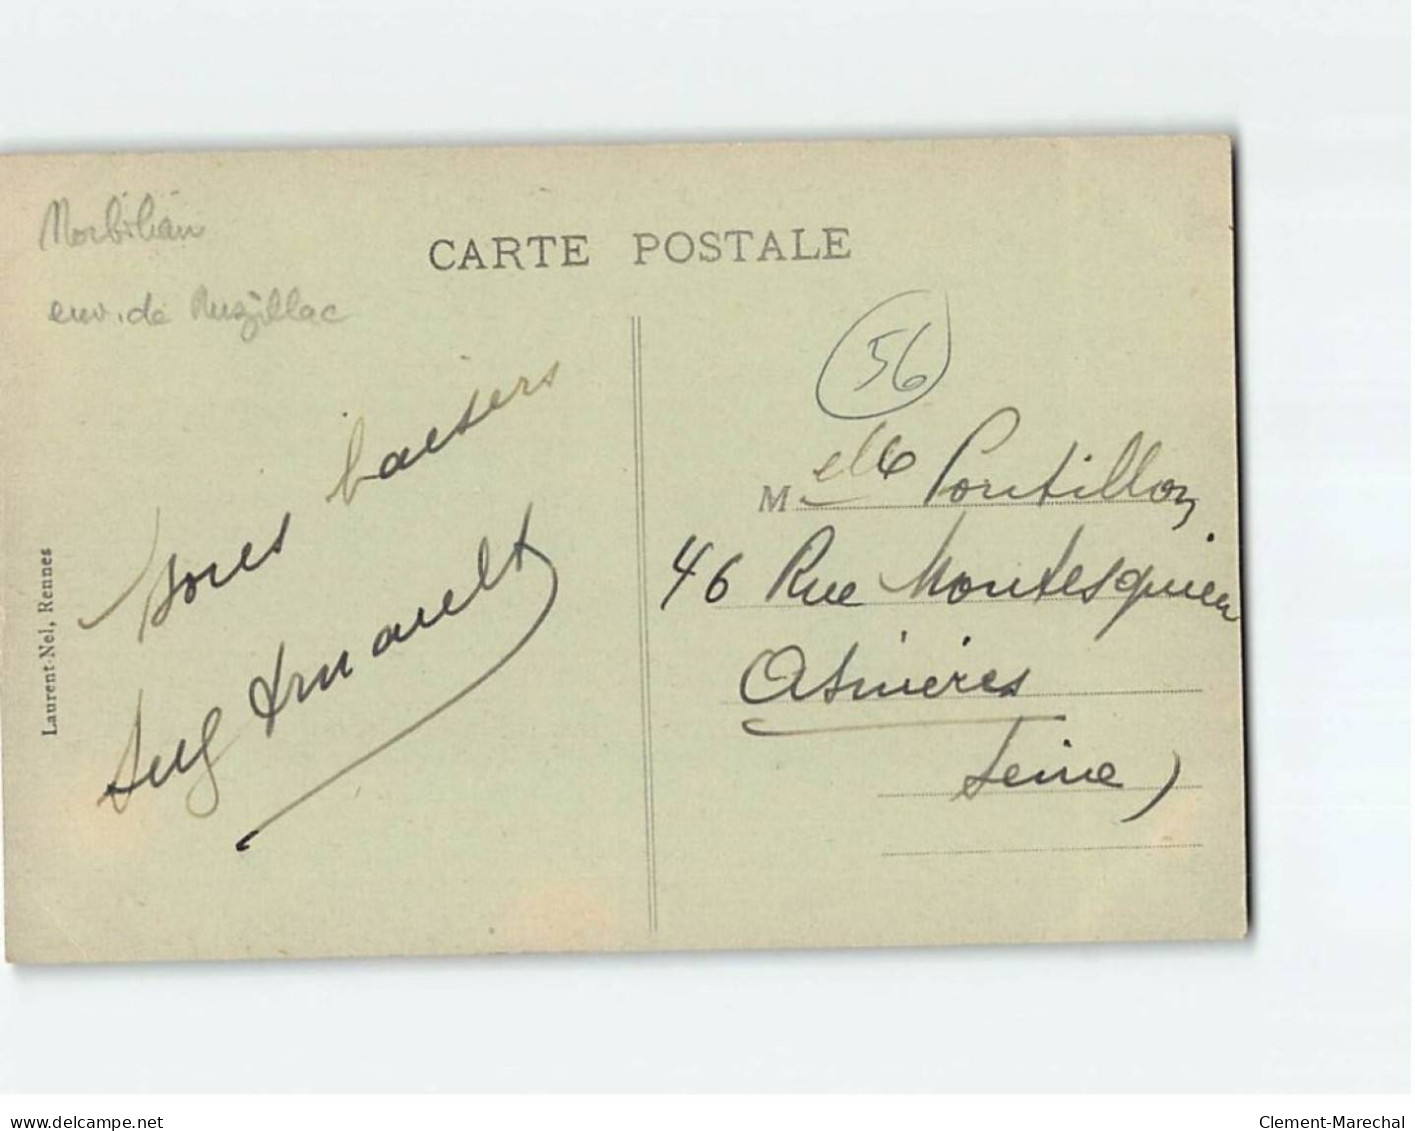 Morbihan
env. de Muzillac
CARTE POSTALE
56
Bons baisers
Arnoult
Laurent-Nel, Rennes
Melle Pontillon
46 Rue Montesquieu
Asnières
Seine)
Clement-Marechal